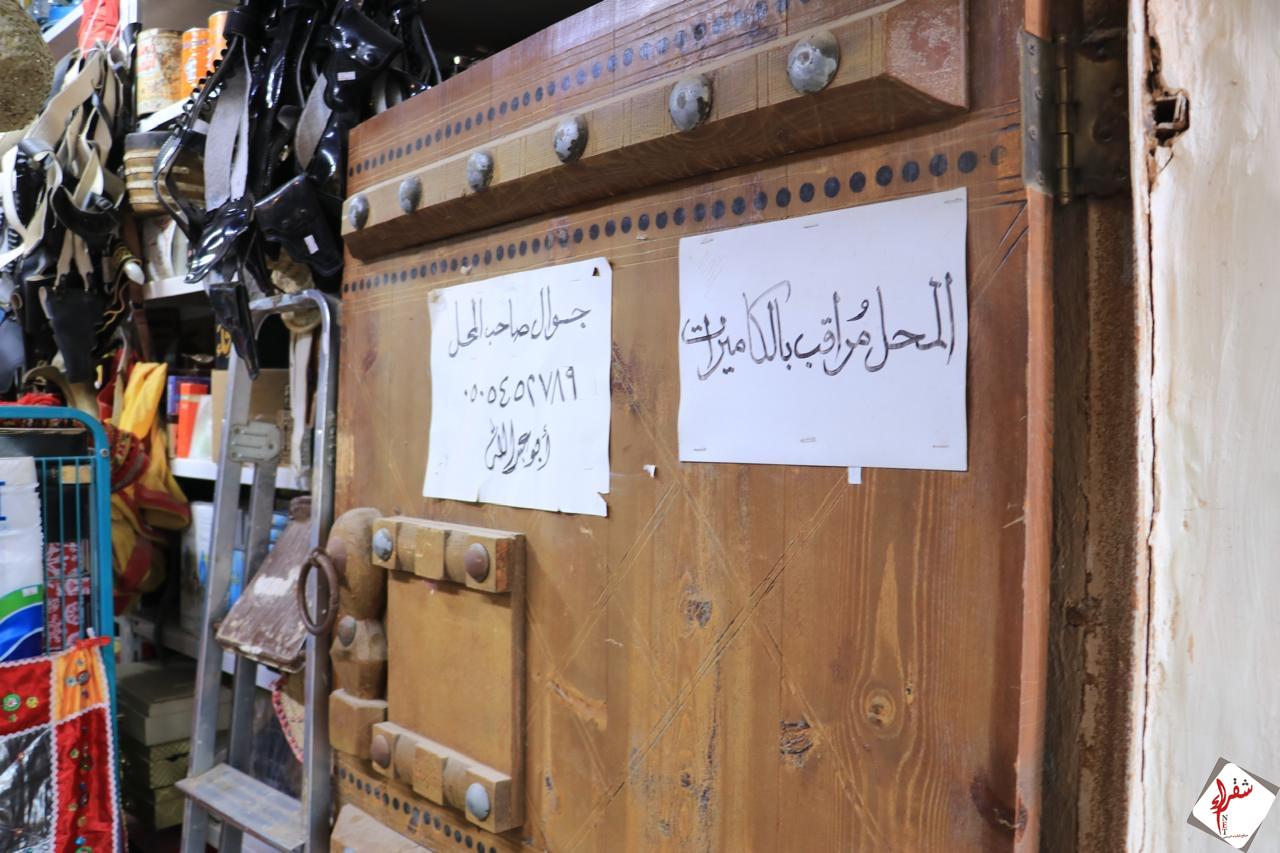 المحل مُراقب بالكاميرات
جوال صاحب المحل
٠٥٠٥٤٥٢٧٨٩
أبو عبدالله
شقراء
NET